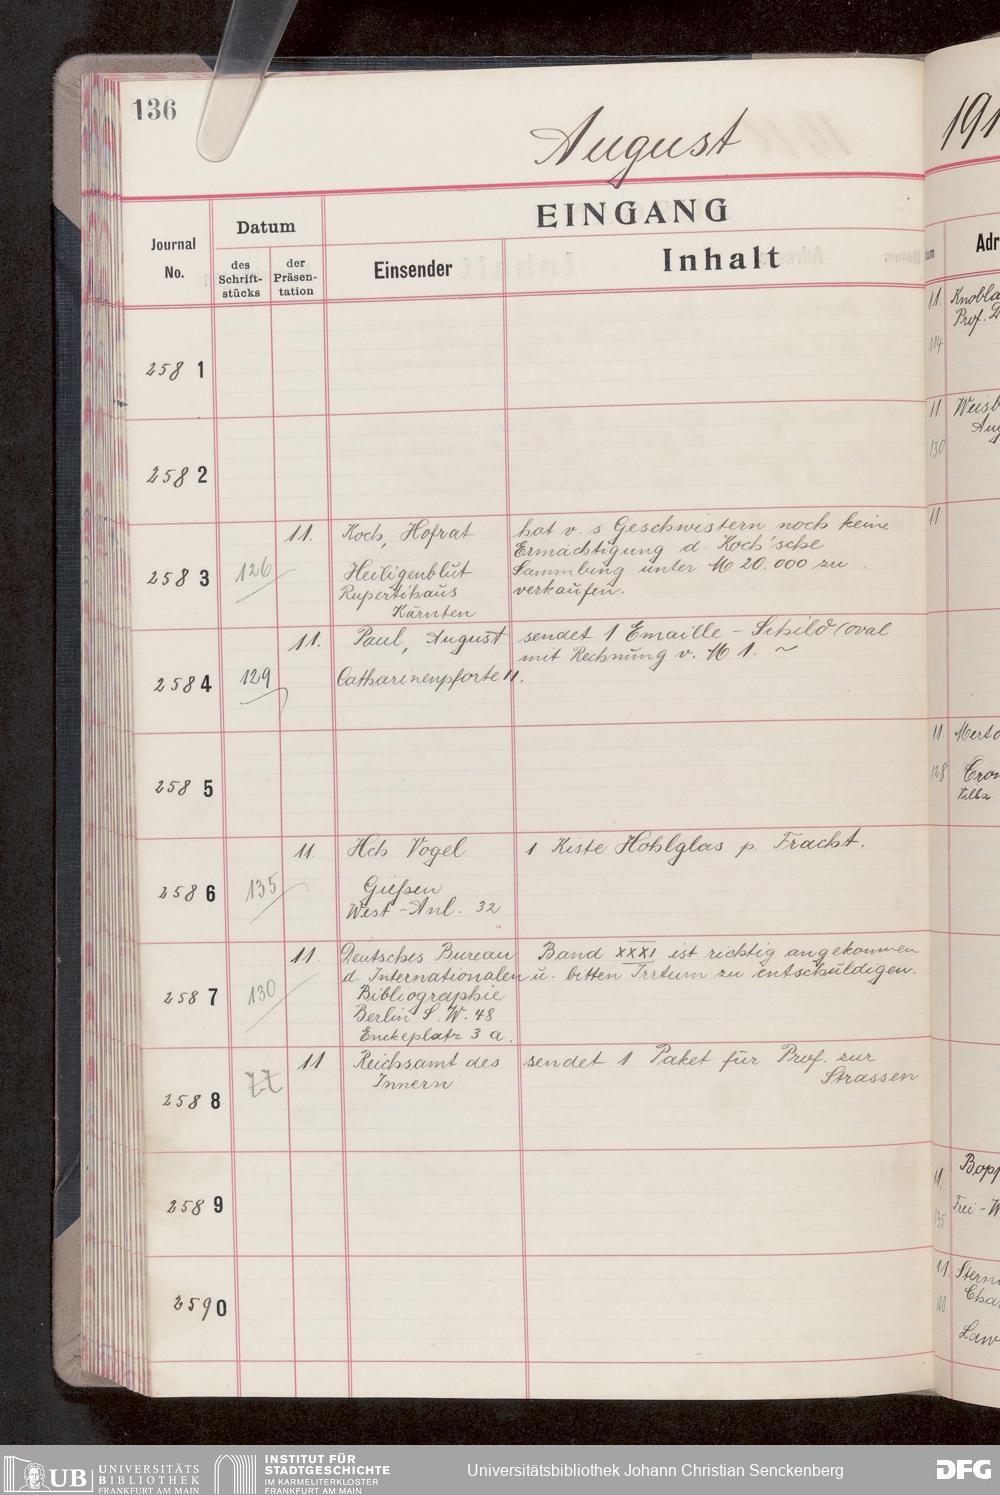 136
August
191
EINGANG
Journal
No.
Datum
des
Schrift-
stücks
der
Präsen-
tation
Einsender
Inhalt
Adr
258 1
258 2
258 3
126
11.
Koch, Hofrat
Heiligenblut
Rupertihaus
Kärnten
hat v. s Geschwistern noch keine
Ermächtigung d. Koch'sche
Sammlung unter M 20.000 zu
verkaufen.
258 4
129
11.
Paul, August
Catharinenpforte 11.
sendet 1 Emaille - Schild (oval
mit Rechnung v. M 1. ~
258 5
258 6
135
11.
Hch. Vogel
Gießen
West-Anl. 32
1 Kiste Hohlglas p. Fracht.
258 7
130
11.
Deutsches Bureau
d. Internationalen
Bibliographie
Berlin S.W. 48
Enckeplatz 3 a.
Band XXXI ist richtig angekommen
u. bitten Irrtum zu entschuldigen.
258 8
11
Reichsamt des
Innern
sendet 1 Paket für Prof. zur
Strassen
258 9
259 0
11.
Knobla
Prof. D
114
11
Weisb
Aug
130
11
11.
Merto
128
Cron
Villa
11.
Bopp
Frei-W
135
11.
Stern
100
Law
UB UNIVERSITÄTS
BIBLIOTHEK
FRANKFURT AM MAIN
INSTITUT FÜR
STADTGESCHICHTE
IM KARMELITERKLOSTER
FRANKFURT AM MAIN
Universitätsbibliothek Johann Christian Senckenberg
DFG